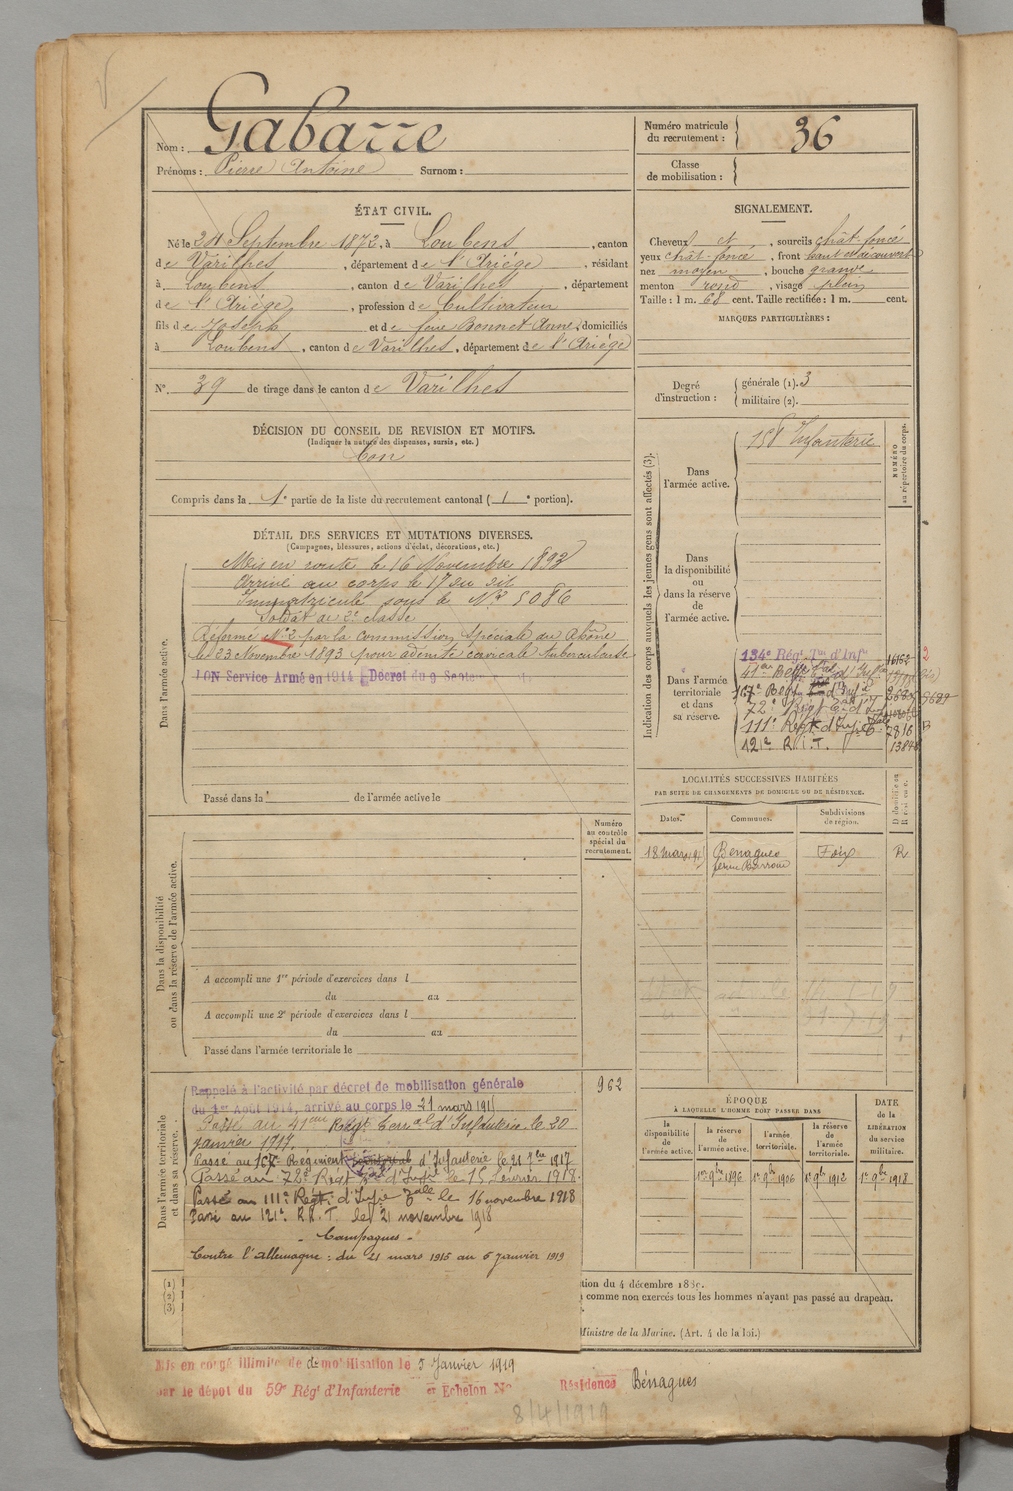 Nom : Gabarre
Prénoms : Pierre Antoine Surnom :
Numéro matricule du recrutement : 36
Classe de mobilisation :
ÉTAT CIVIL.
Né le 24 Septembre 1872, à Loubens, canton
de Varilhes, département de l'Ariège, résidant
à Loubens, canton de Varilhes, département
de l'Ariège, profession de Cultivateur
fils de Joseph et de feue Bonnet Anne, domiciliés
à Loubens, canton de Varilhes, département de l'Ariège
N° 39 de tirage dans le canton de Varilhes
SIGNALEMENT.
Cheveux et, sourcils chât-foncé
yeux chât-foncé, front haut et découvert
nez moyen, bouche grande
menton rond, visage plein
Taille : 1 m. 68 cent. Taille rectifiée : 1 m. cent.
MARQUES PARTICULIÈRES :
Degré d'instruction : générale (1). 3
militaire (2).
DÉCISION DU CONSEIL DE REVISION ET MOTIFS.
(Indiquer la nature des dispenses, sursis, etc.)
bon
Compris dans la 1e partie de la liste du recrutement cantonal (1e portion).
DÉTAIL DES SERVICES ET MUTATIONS DIVERSES.
(Campagnes, blessures, actions d'éclat, décorations, etc.)
Dans l'armée active.
Mis en route le 16 Novembre 1893
Arrivé au corps le 17 du dit
Immatriculé sous le N° 5086
Soldat de 2e classe
Réformé N° 2 par la commission spéciale du Rhône
le 23 Novembre 1893 pour adénite cervicale tuberculeuse
BON Service Armé en 1914 Décret du 9
Passé dans la de l'armée active le
Indication des corps auxquels les jeunes gens sont affectés (3).
NUMÉRO au répertoire du corps.
Dans l'armée active.
158 Infanterie
Dans la disponibilité ou dans la réserve de l'armée active.
Dans l'armée territoriale et dans sa réserve.
134e Régt Ter d'Infie
72e
111e Régt d'Infie
121e R.I.T.
LOCALITÉS SUCCESSIVES HABITÉES
PAR SUITE DE CHANGEMENTS DE DOMICILE OU DE RÉSIDENCE.
Dates. Communes. Subdivisions de région.
18 mars Benagues Foix R
Numéro au contrôle spécial du recrutement.
Dans la disponibilité ou dans la réserve de l'armée active.
A accompli une 1re période d'exercices dans l
du au
A accompli une 2e période d'exercices dans l
du au
Passé dans l'armée territoriale le
962
Dans l'armée territoriale et dans sa réserve.
Rappelé à l'activité par décret de mobilisation générale
du 1er Août 1914, arrivé au corps le 21 mars 1915
Passé au 41eme Régt Terral d'Infanterie le 20
janvier 1917
Passé au 167e Régiment territorial d'Infanterie le 21 7bre 1917
Passé au 72e Régt d'Infie le 15 février 1918.
Passé au 111e Régt d'Infie le 16 novembre 1918
Passé au 121e R.I.T. le 21 novembre 1918
- Campagnes -
Contre l'Allemagne : du 21 mars 1915 au 5 janvier 1919
ÉPOQUE
À LAQUELLE L'HOMME DOIT PASSER DANS
la disponibilité de l'armée active.
la réserve de l'armée active.
l'armée territoriale.
la réserve de l'armée territoriale.
DATE de la LIBÉRATION du service militaire.
1er 9bre 1896 1er 9bre 1906 1er 9bre 1912 1er 9bre 1918
(1)
(2)
(3)
tion du 4 décembre 18
comme non exercés tous les hommes n'ayant pas passé au drapeau.
Ministre de la Marine. (Art. 4 de la loi.)
Mis en congé illimité de démobilisation le 5 Janvier 1919
par le dépot du 59e Régt d'Infanterie Echelon N° Résidence Bénagues
8/4/1919